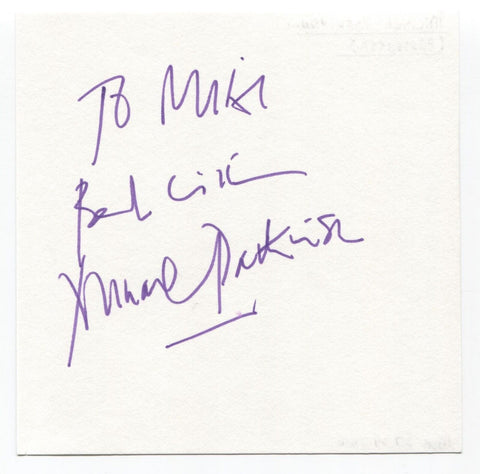 To Mike
Best wishes
Michael Parkinson